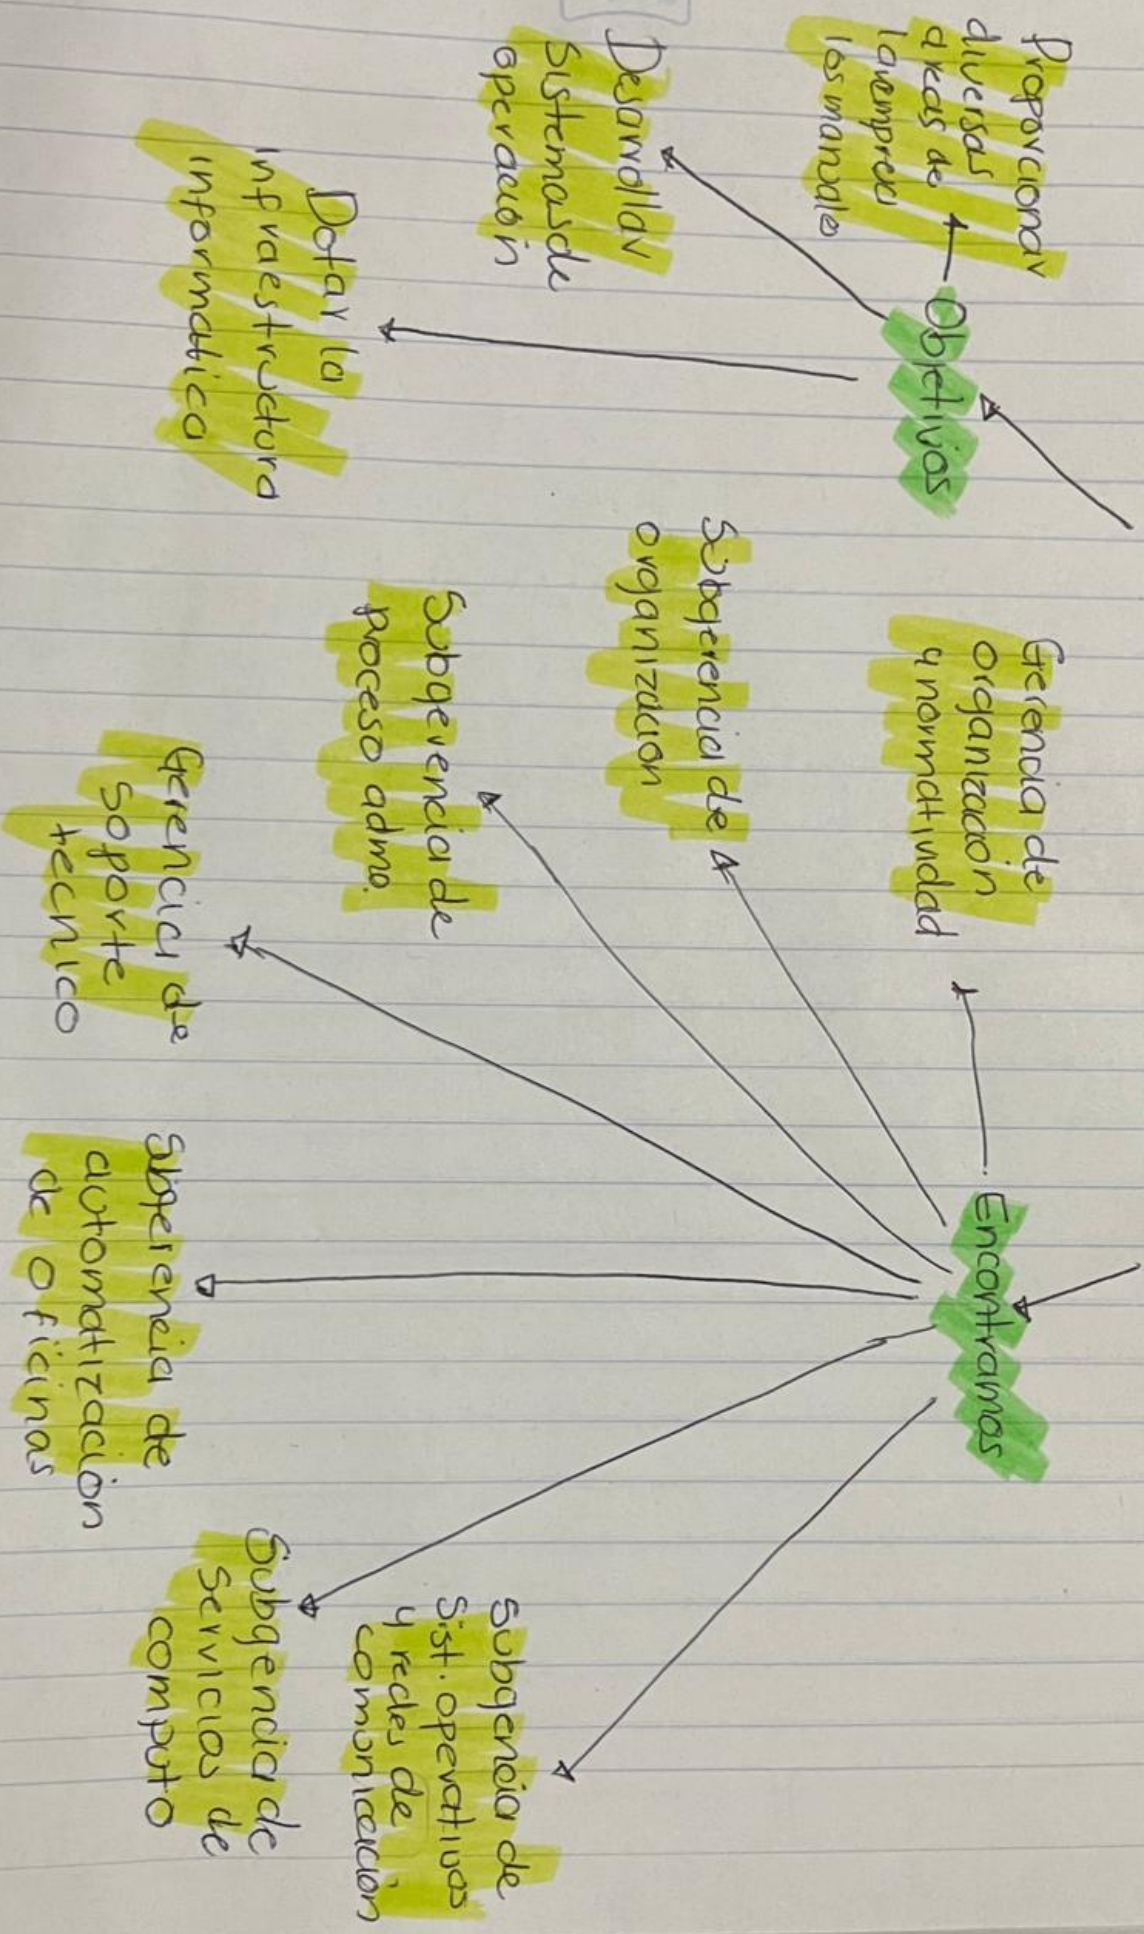 Proporcionar
diversas
areas de
la empresa
los manuales
Objetivos
Desarrollar
Sistemas de
operación
Dotar la
infraestructura
informatica
Encontramos
Gerencia de
Organización
y normatividad
Subgerencia de
organizacion
Subgerencia de
proceso admo.
Gerencia de
soporte
tecnico
Subgerencia de
automatización
de oficinas
Subgencia de
servicios de
computo
Subgencia de
Sist. operativos
y redes de
comunicación